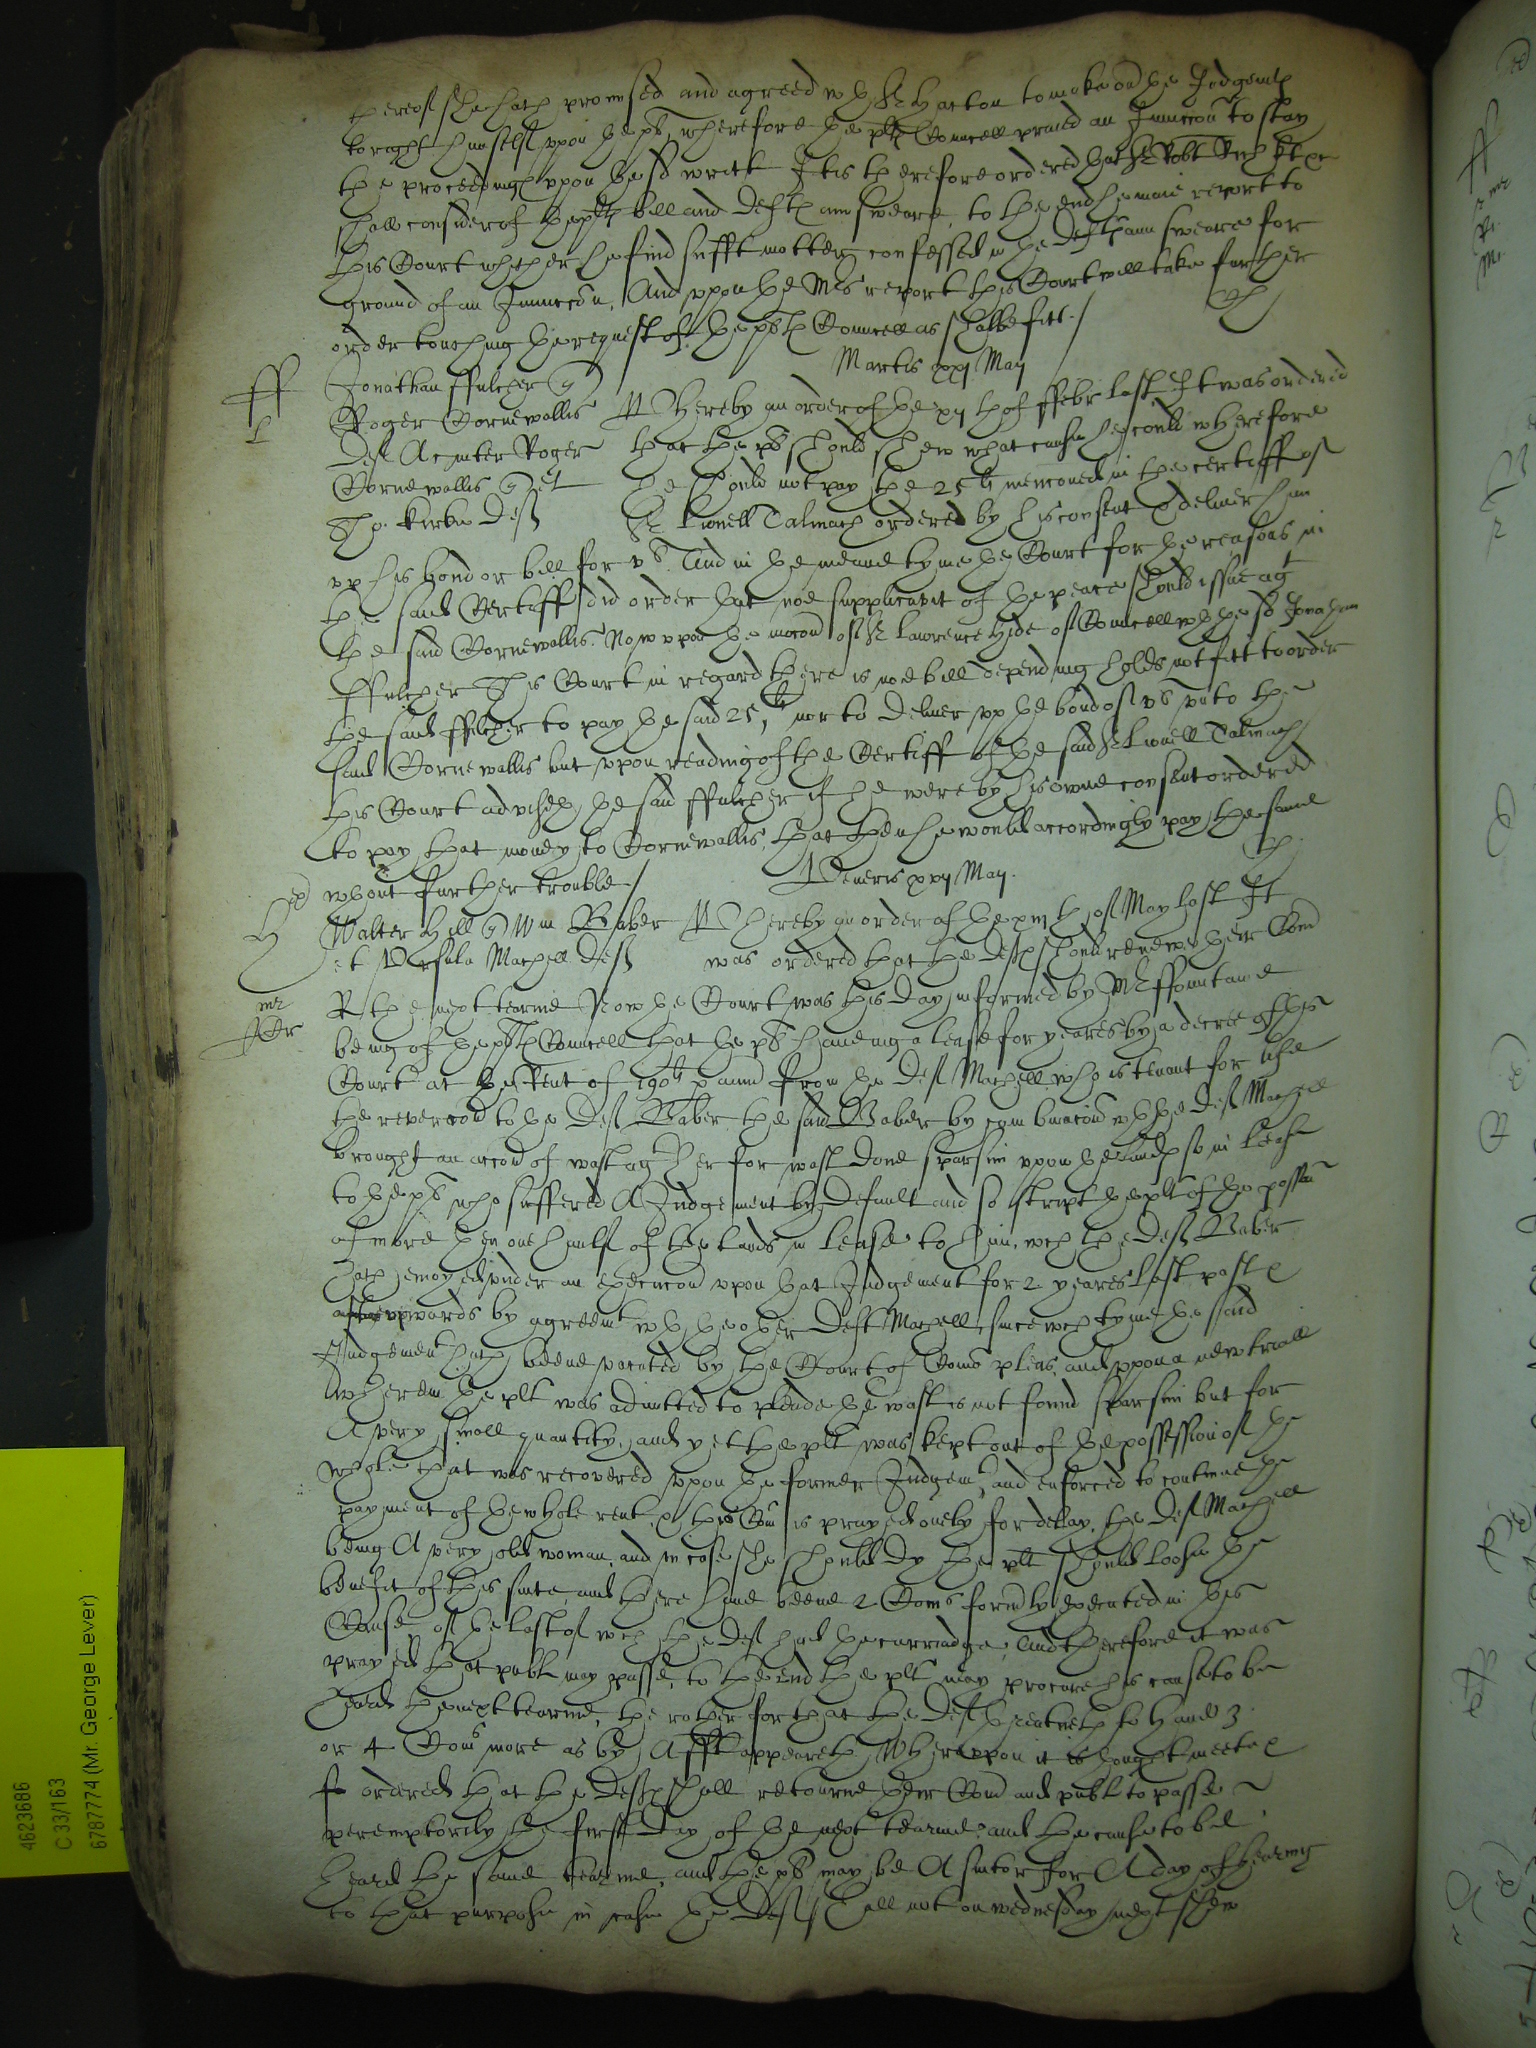 thereof she hath promised and agreed wth Sr Hatton to make ov the Judgemt
to right himselfe upon the pt, wherefore the plts Councell praied an Iniuncon to stay
the proceedings upon the sd writt It is therefore ordered that Sr Robt Rich kt &c
shall consider of the plts bill and Defts answeare, to the end he maie report to
this Court whether he find sufft matter confessed in the Defts answeare for
ground of an Iniuncon, And upon the Mrs report this Court will take further
order touching the request of the plts Councell as shalbe fitt./
Martis xxj Maij
Jonathan ffulcher q
Roger Cornewallis
Def A inter Roger
Cornewallis q et
Jo: ffulcher Def
Whereby an order of the xij th of ffebr last It was ordered
that the pt should shew what cause he could wherefore
he should not pay the 25li mentioned in the certiff of
Sr Lionell Talmach ordered by his consent & deliver him
up his bond or bill for vs. And in the meane tyme the Court for the reasons in
the said Certiff did order that noe supplicavit of the peace should issue agt
the said Cornewallis. Now upon the mocon of Sr Lawrence Hide of Councell wth the sd Jonathan
ffulcher This Court in regard there is noe bill depending holds not fitt to order
the said ffulcher to pay the said 25li, nor to deliver up the bond of vs unto the
said Cornewallis but upon reading of the Certiff of the said Sr Lionell Talmach
this Court adviseth the said ffulcher if he were by his owne consent ordered
to pay that money to Cornewallis, that then he would accordingly pay the same
wthout further trouble./
Veneris xxij Maij
Walter Hill q Wm Baber
et Ursula Machell Def
Whereby an order of the xiij th of May last It
was ordered that the Defts should renewe their Com
R the next tearme Now the Court was this day informed by Mr ffountaine
being of the plts Councell that the pt haveing a lease for yeares by a decree of this
Court at the Rent of 190li p ann from the Deft Machell, who is tenant for life
the revercon to the Deft Baber the said Baber by combinacon wth the Deft Machell
brought an accon of wast agt her for wast done sparsim upon the lands so in lease
to the pt who suffered A Judgement by default and so stript the plt of the possion
of more then one halfe of the lands in lease to him, wch the Deft Baber
hath enioyed under an execucon upon that Judgement for 2 yeares last past &
upwards by agreemt wth the other Deft Machell, since wch tyme the said
Judgement hath beene vacated by the Court of Comon pleas, and upon a new triall
wherein the plt was admitted to plead the wast is not found sparsim but for
A very small quantity, and yet the plt was kept out of the possession of the
whole that was recovered upon the former Judgemt, and enforced to continue the
payment of the whole rent, & this Com is prayed onely for delay, the Deft Machell
being A very old woman, and in case she should dy the plt should loose the
benefit of this suite, and there have beene 2 Coms formerly executed in this
Cause of the last of wch the Deft had the carriadge, And therefore it was
prayed that publ may passe, to the end the plt may procure his cause to be
heard the next tearme, the rather for that the Deft threatneth to have 3
or 4 Coms more as by Afft appeareth Whereupon it is thought meete &
so ordered that the Defts shall retourne their Com and publ to passe
peremptorily the first day of the next tearme, and the cause to be
heard the same tearme, and the pt may be A suitor for A day of hearing
to that purpose in case the Deft shall not on wednesday next shew
4623686
C 33/163
6787774 (Mr. George Lever)